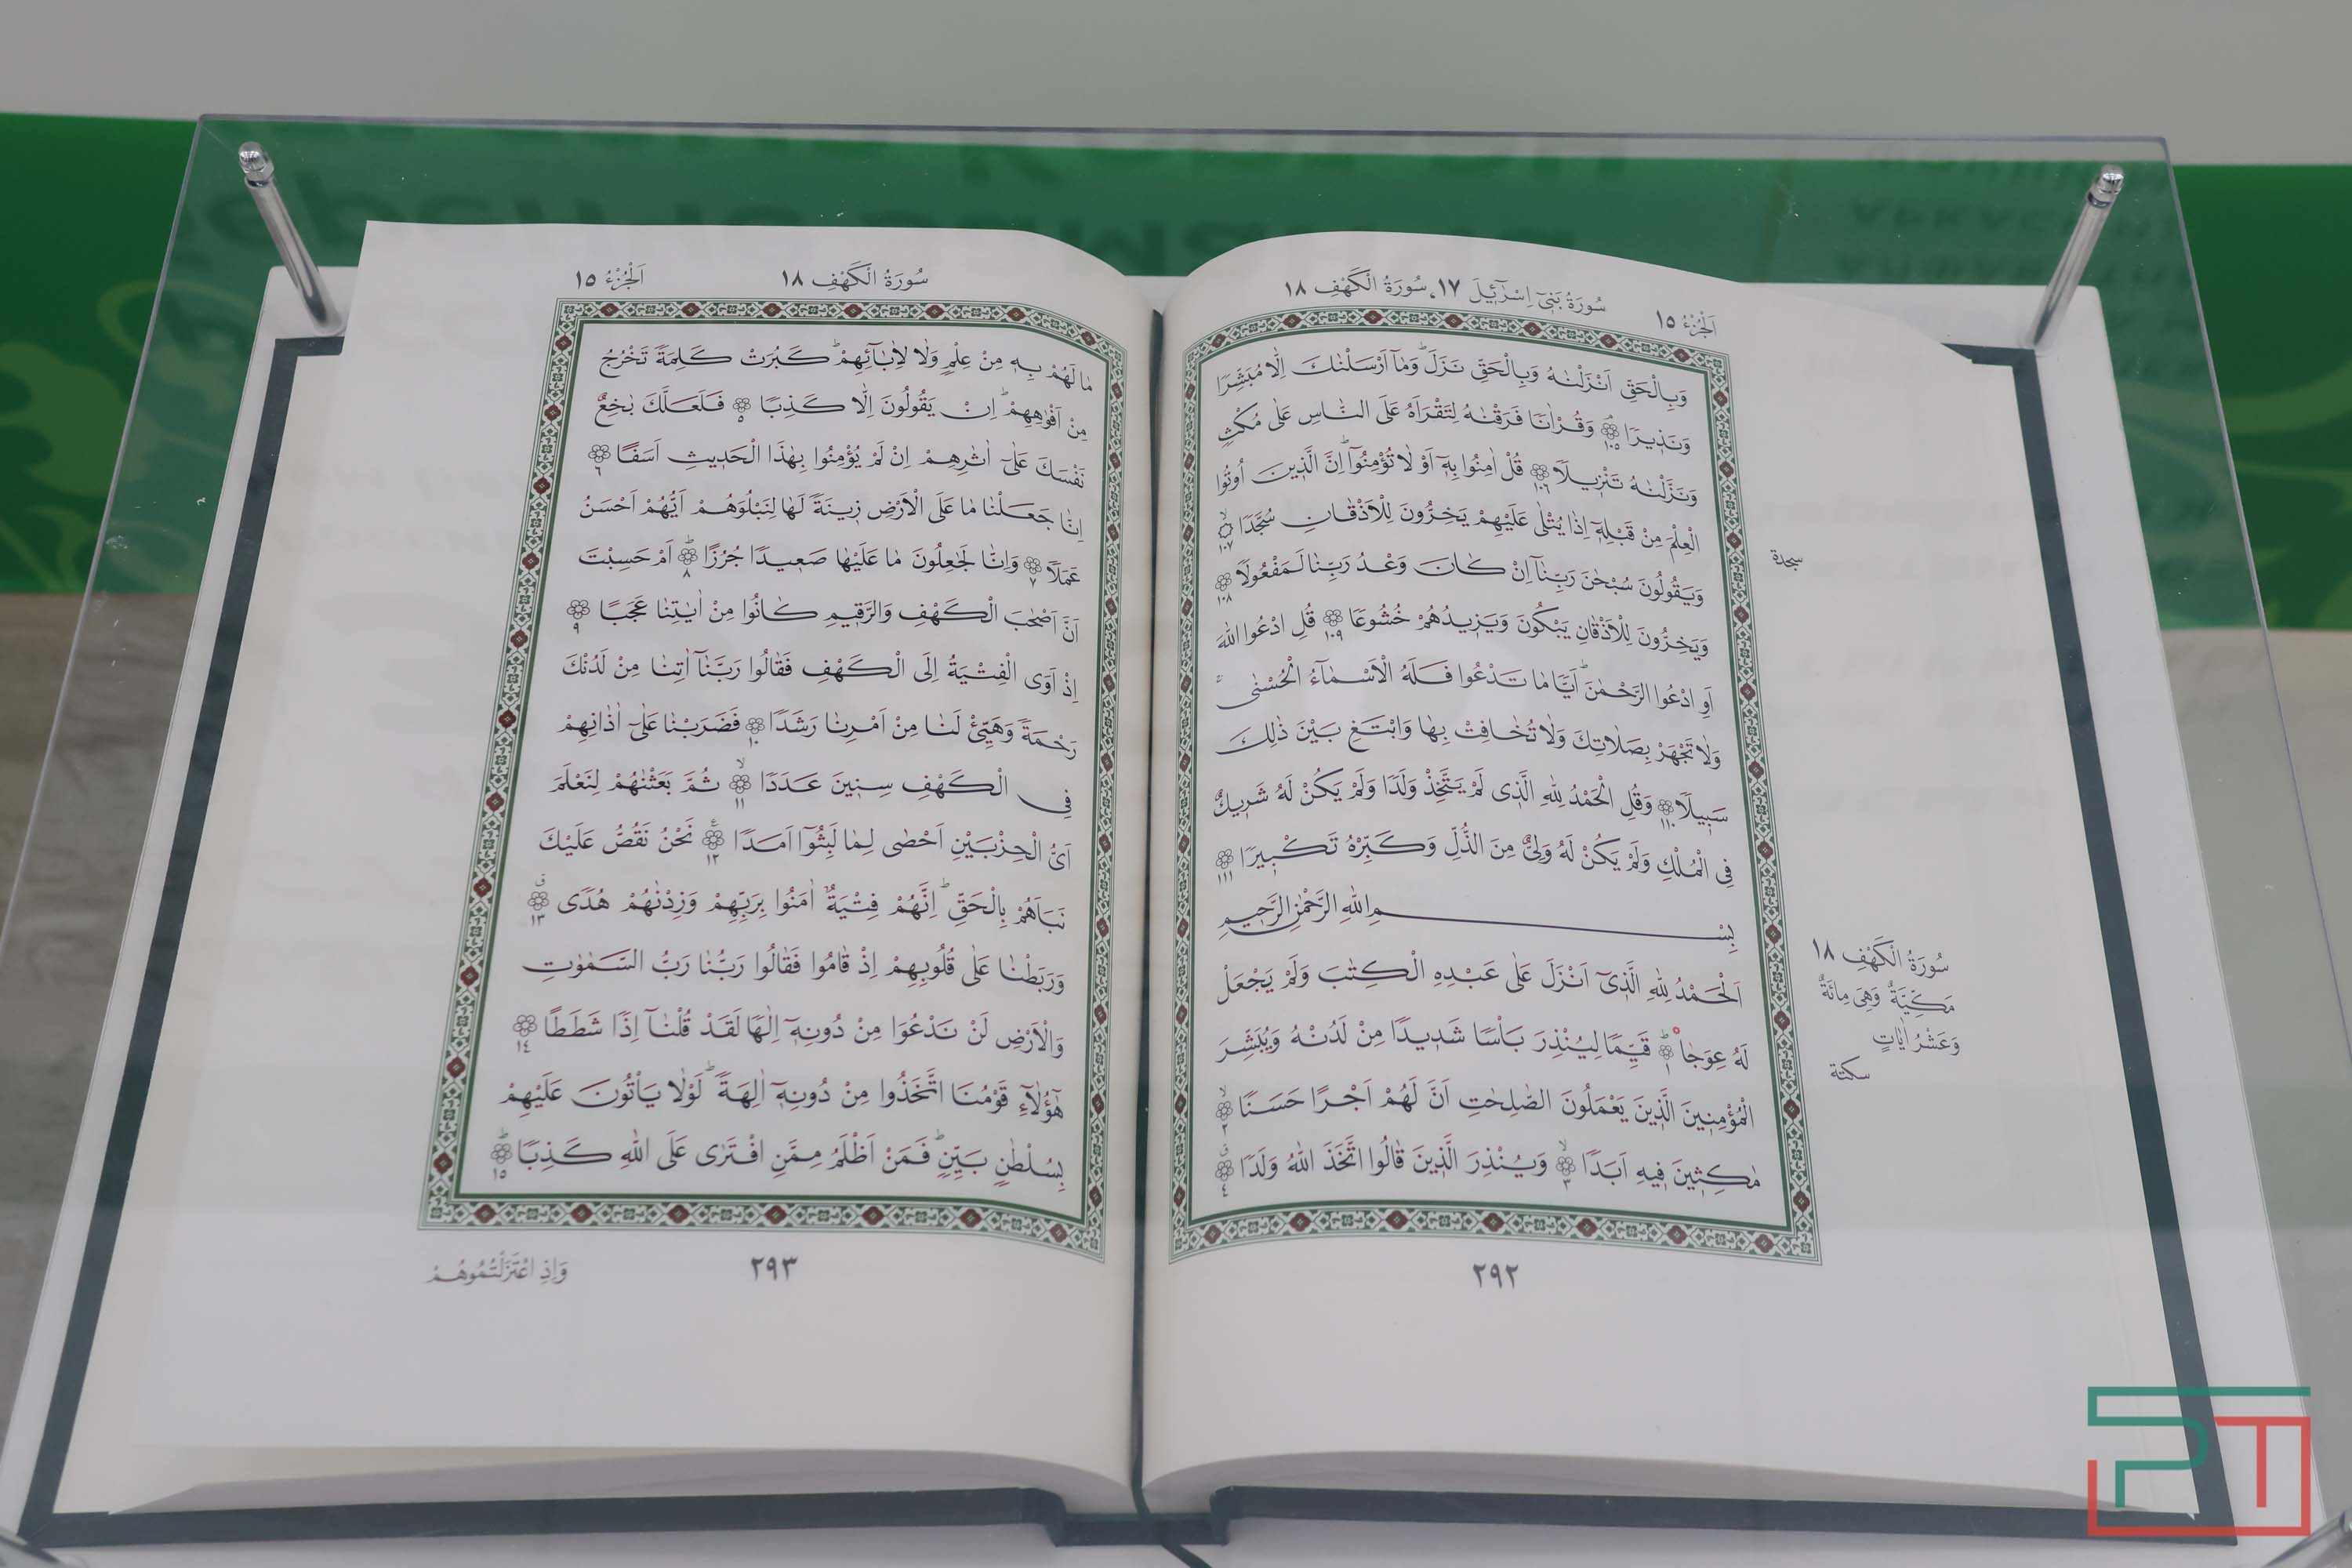 اَلْجُزْءُ ١٥
سُورَةُ بَنِيٓ اِسْرَٓائِيلَ ١٧، سُورَةُ الْكَهْفِ ١٨
وَبِالْحَقِّ اَنْزَلْنٰهُ وَبِالْحَقِّ نَزَلَ ۜ وَمَٓا اَرْسَلْنٰكَ اِلَّا مُبَشِّرًا
وَنَذِيرًا ۝١٠٥ وَقُرْاٰنًا فَرَقْنٰهُ لِتَقْرَاَهُ عَلَى النَّاسِ عَلٰى مُكْثٍ
وَنَزَّلْنٰهُ تَنْزِيلًا ۝١٠٦ قُلْ اٰمِنُوا بِهٖٓ اَوْ لَا تُؤْمِنُواؕ اِنَّ الَّذِينَ اُوتُوا
الْعِلْمَ مِنْ قَبْلِهٖٓ اِذَا يُتْلٰى عَلَيْهِمْ يَخِرُّونَ لِلْاَذْقَانِ سُجَّدًا ۝١٠٧
وَيَقُولُونَ سُبْحٰنَ رَبِّنَٓا اِنْ كَانَ وَعْدُ رَبِّنَا لَمَفْعُولًا ۝١٠٨
وَيَخِرُّونَ لِلْاَذْقَانِ يَبْكُونَ وَيَزِيدُهُمْ خُشُوعًا ۝١٠٩ قُلِ ادْعُوا اللّٰهَ
اَوِ ادْعُوا الرَّحْمٰنَؕ اَيًّا مَا تَدْعُوا فَلَهُ الْاَسْمَٓاءُ الْحُسْنٰى
وَلَا تَجْهَرْ بِصَلَاتِكَ وَلَا تُخَافِتْ بِهَا وَابْتَغِ بَيْنَ ذٰلِكَ
سَبِيلًا ۝١١٠ وَقُلِ الْحَمْدُ لِلّٰهِ الَّذِى لَمْ يَتَّخِذْ وَلَدًا وَلَمْ يَكُنْ لَهُ شَرِيكٌ
فِى الْمُلْكِ وَلَمْ يَكُنْ لَهُ وَلِىٌّ مِنَ الذُّلِّ وَكَبِّرْهُ تَكْبِيرًا ۝١١١
بِسْمِ اللّٰهِ الرَّحْمٰنِ الرَّحِيمِ
اَلْحَمْدُ لِلّٰهِ الَّذِىٓ اَنْزَلَ عَلٰى عَبْدِهِ الْكِتٰبَ وَلَمْ يَجْعَلْ
لَهُ عِوَجًا ۝١ قَيِّمًا لِيُنْذِرَ بَاْسًا شَدِيدًا مِنْ لَدُنْهُ وَيُبَشِّرَ
الْمُؤْمِنِينَ الَّذِينَ يَعْمَلُونَ الصّٰلِحٰتِ اَنَّ لَهُمْ اَجْرًا حَسَنًا ۝٢
مٰكِثِينَ فِيهِ اَبَدًا ۝٣ وَيُنْذِرَ الَّذِينَ قَالُوا اتَّخَذَ اللّٰهُ وَلَدًا ۝٤
٢٩٢
سجدة
سُورَةُ الْكَهْفِ ١٨
مَكِّيَّةٌ وَهِىَ مِائَةٌ
وَعَشْرُ اٰيَاتٍ
سكتة
سُورَةُ الْكَهْفِ ١٨
اَلْجُزْءُ ١٥
مَا لَهُمْ بِهٖ مِنْ عِلْمٍ وَلَا لِاٰبَٓائِهِمْؕ كَبُرَتْ كَلِمَةً تَخْرُجُ
مِنْ اَفْوَاهِهِمْؕ اِنْ يَقُولُونَ اِلَّا كَذِبًا ۝٥ فَلَعَلَّكَ بَاخِعٌ
نَفْسَكَ عَلٰٓى اٰثٰرِهِمْ اِنْ لَمْ يُؤْمِنُوا بِهٰذَا الْحَدِيثِ اَسَفًا ۝٦
اِنَّا جَعَلْنَا مَا عَلَى الْاَرْضِ زِينَةً لَهَا لِنَبْلُوَهُمْ اَيُّهُمْ اَحْسَنُ
عَمَلًا ۝٧ وَاِنَّا لَجَاعِلُونَ مَا عَلَيْهَا صَعِيدًا جُرُزًا ۝٨ اَمْ حَسِبْتَ
اَنَّ اَصْحٰبَ الْكَهْفِ وَالرَّقِيمِ كَانُوا مِنْ اٰيٰتِنَا عَجَبًا ۝٩
اِذْ اَوَى الْفِتْيَةُ اِلَى الْكَهْفِ فَقَالُوا رَبَّنَٓا اٰتِنَا مِنْ لَدُنْكَ
رَحْمَةً وَهَيِّئْ لَنَا مِنْ اَمْرِنَا رَشَدًا ۝١٠ فَضَرَبْنَا عَلٰٓى اٰذَانِهِمْ
فِى الْكَهْفِ سِنِينَ عَدَدًا ۝١١ ثُمَّ بَعَثْنٰهُمْ لِنَعْلَمَ
اَىُّ الْحِزْبَيْنِ اَحْصٰى لِمَا لَبِثُٓوا اَمَدًا ۝١٢ نَحْنُ نَقُصُّ عَلَيْكَ
نَبَاَهُمْ بِالْحَقِّؕ اِنَّهُمْ فِتْيَةٌ اٰمَنُوا بِرَبِّهِمْ وَزِدْنٰهُمْ هُدًى ۝١٣
وَرَبَطْنَا عَلٰى قُلُوبِهِمْ اِذْ قَامُوا فَقَالُوا رَبُّنَا رَبُّ السَّمٰوٰتِ
وَالْاَرْضِ لَنْ نَدْعُوَا مِنْ دُونِهٖٓ اِلٰهًا لَقَدْ قُلْنَٓا اِذًا شَطَطًا ۝١٤
هٰٓؤُلَٓاءِ قَوْمُنَا اتَّخَذُوا مِنْ دُونِهٖٓ اٰلِهَةًؕ لَوْلَا يَاْتُونَ عَلَيْهِمْ
بِسُلْطٰنٍ بَيِّنٍؕ فَمَنْ اَظْلَمُ مِمَّنِ افْتَرٰى عَلَى اللّٰهِ كَذِبًا ۝١٥
٢٩٣
وَاِذِ اعْتَزَلْتُمُوهُمْ